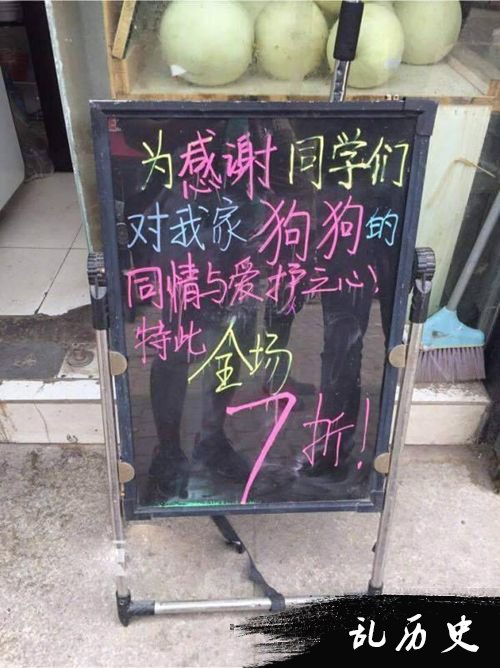 为感谢同学们
对我家狗狗的
同情与爱护之心！
特此全场
7折！
乱历史